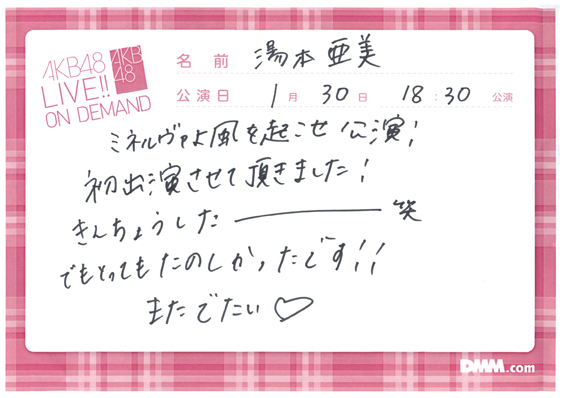 AKB48
LIVE!!
ON DEMAND
AKB
48
名前 湯本亜美
公演日 1月 30日 18:30 公演
ミネルヴァよ風を起こせ公演!
初出演させて頂きました!
きんちょうした――――笑
でもとってもたのしかったです!!
またでたい♡
DMM.com